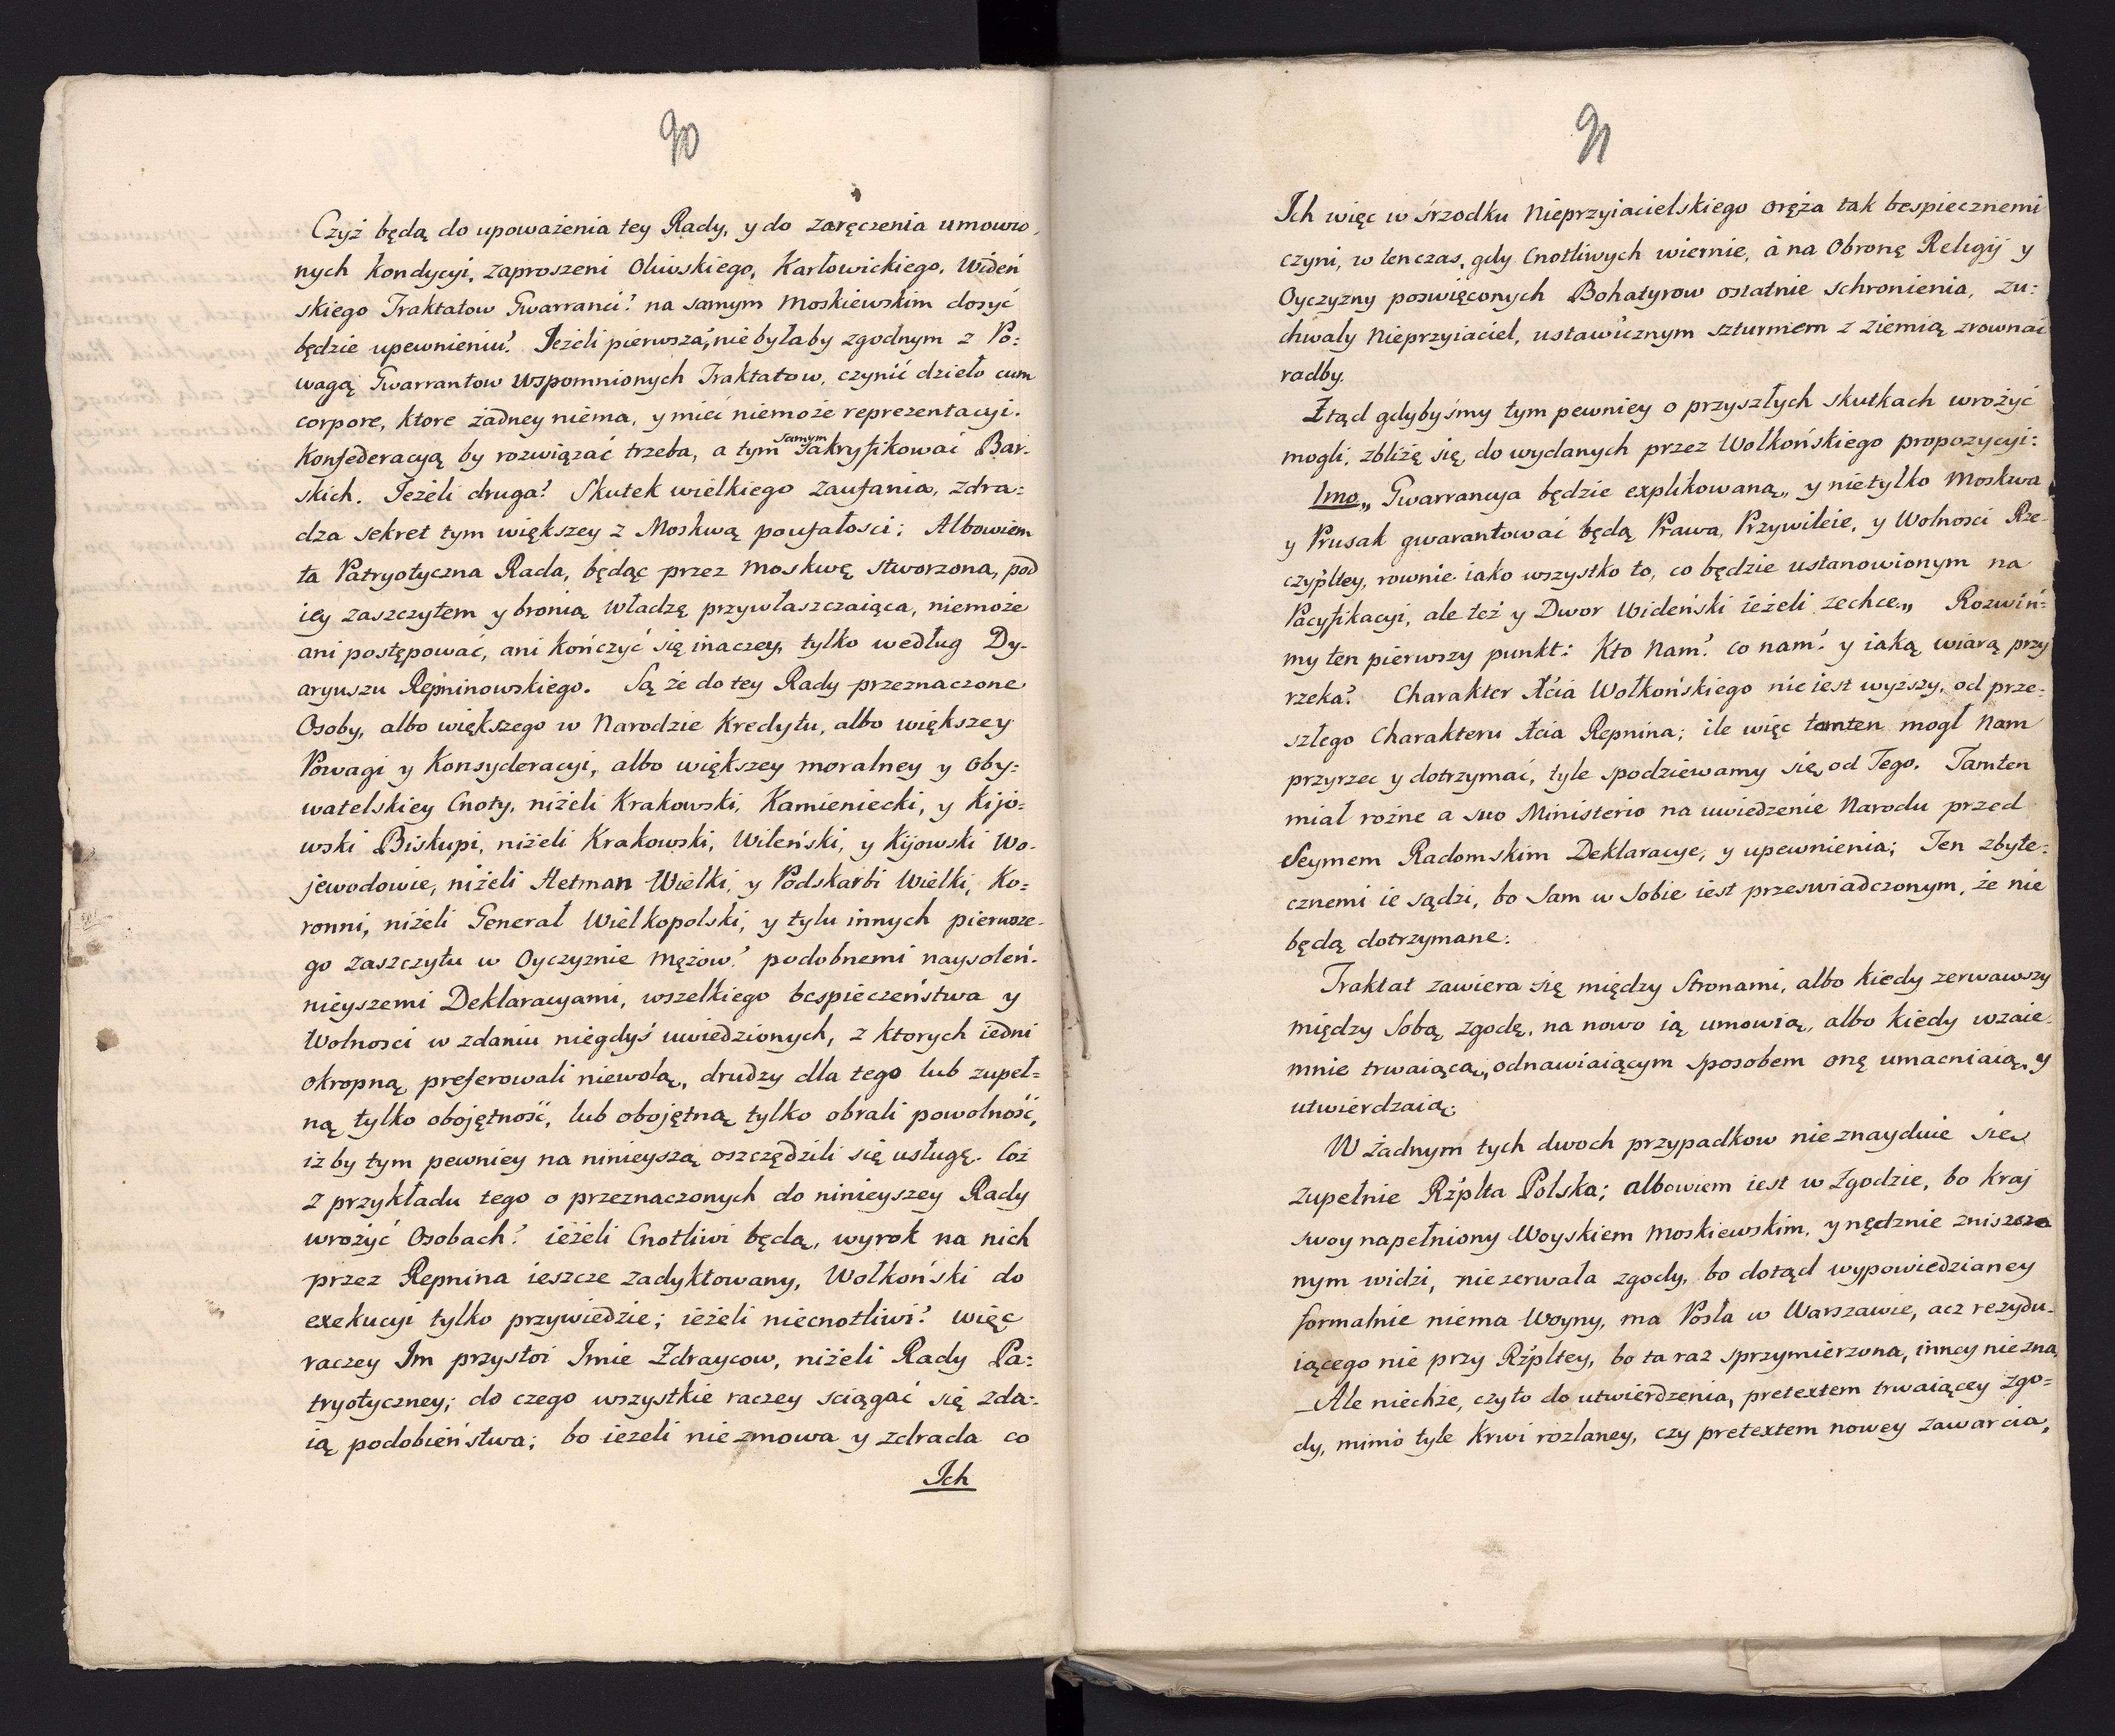 90
Czyż będą do upoważenia tey Rady, y do zaręczenia umowio,
nych kondycyi, zaproszeni Oliwskiego, Karłowickiego, Wideń
skiego Traktatow Gwarranci? na samym Moskiewskim dosyć
będzie upewnieniu? Jeżeli pierwsza, nie byłaby zgodnym z Po:
wagą Gwarrantow wspomnionych Traktatow, czynić dzieło cum
corpore, ktore żadney niema, y mieć niemoże reprezentacyi.
Konfederacyą by rozwiązać trzeba, a tym samym sakryfikować Bar.
skich. Jeżeli druga? Skutek wielkiego zaufania, zdra=
dza sekret tym większey z Moskwą poufałosci: Albowiem
ta Patryotyczna Rada, będąc przez Moskwę stworzona, pod
iey zaszczytem y bronią władzę przywłaszczaiąca, niemoże
ani postępować, ani kończyć się inaczey, tylko według Dy-
aryuszu Repninowskiego. Są że do tey Rady przeznaczone
Osoby, albo większego w Narodzie Kredytu, albo większey
Powagi y Konsyderacyi, albo większey moralney y Oby=
watelskiey Cnoty, niżeli Krakowski, Kamieniecki, y Kijo=
wski Biskupi, niżeli Krakowski, Wileński, y Kijowski Wo-
jewodowie, niżeli Hetman Wielki, y Podskarbi Wielki, Ko=
ronni, niżeli Generał Wielkopolski, y tylu innych pierwsze-
go zaszczytu w Oyczyznie Mężow? podobnemi naysoleń-
nieyszemi Deklaracyami, wszelkiego bespieczeństwa y
Wolnosci w zdaniu niegdyś uwiedzionych, z ktorych iedni
okropną preferowali niewolą, drudzy dla tego lub zupeł=
ną tylko obojętność, lub obojętną tylko obrali powolność,
iż by tym pewniey na ninieyszą oszczędzili się usługę. Coż
z przykładu tego o przeznaczonych do ninieyszey Rady
wrożyć Osobach? ieżeli Cnotliwi będą, wyrok na nich
przez Repnina ieszcze zadyktowany, Wołkoński do
exekucyi tylko przywiedzie; ieżeli niecnotliwi? więc
raczey Im przystoi Imie Zdraycow, niżeli Rady Pa=
tryotyczney; do czego wszystkie raczey sciągać się zda=
ią podobieństwa; bo ieżeli nie zmowa y zdrada co
Ich
91
Ich więc w śrzodku Nieprzyiacielskiego oręża tak bespiecznemi
czyni, w tenczas, gdy Cnotliwych wiernie, á na Obronę Religij y
Oyczyzny poswięconych Bohatyrow ostatnie schronienia, zu:
chwały Nieprzyiaciel, ustawicznym szturmem z ziemią zrownać
radby.
Ztąd gdybyśmy tym pewniey o przyszłych skutkach wrożyć
mogli, zbliżę się do wydanych przez Wołkońskiego propozycyi:
1mo „Gwarrancya będzie explikowaną„ y nietylko Moskwa
y Prusak gwarantować będą Prawa, Przywileie, y Wolnosci Rze-
czypltey, rownie iako wszystko to, co będzie ustanowionym na
Pacyfikacyi, ale też y Dwor Wideński ieżeli zechce„ Rozwiń=
my ten pierwszy punkt: Kto Nam? co nam? y iaką wiarą przy
rzeka? Charakter Xcia Wołkońskiego nic iest wyższy, od prze=
szłego Charakteru Xcia Repnina; ile więc tamten mogł Nam
przyrzec y dotrzymać, tyle spodziewamy się od Tego. Tamten
miał rożne a suo Ministerio na uwiedzenie Narodu przed
Seymem Radomskim Deklaracye, y upewnienia; Ten zbyte=
cznemi ie sądzi, bo Sam w Sobie iest przeswiadczonym, że nie
będą dotrzymane:
Traktat zawiera się między Stronami, albo kiedy zerwawszy
między Sobą zgodę, na nowo ią umowią, albo kiedy wzaie-
mnie trwaiącą, odnawiaiącym sposobem onę umacniaią, y
utwierdzaią:
W żadnym tych dwoch przypadkow nie znayduie się
zupełnie Rżplta Polska; albowiem iest w Zgodzie, bo kraj
swoy napełniony Woyskiem Moskiewskim, y nędznie zniszczo
nym widzi, nie zerwała zgody, bo dotąd wypowiedzianey
formalnie niema Woyny, ma Posła w Warszawie, acz rezydu-
iącego nie przy Rżpltey, bo ta raz sprzymierzona, inney nie zna,
Ale niechże, czyto do utwierdzenia, pretextem trwaiącey zgo=
dy, mimo tyle krwi rozlaney, czy pretextem nowey zawarcia,